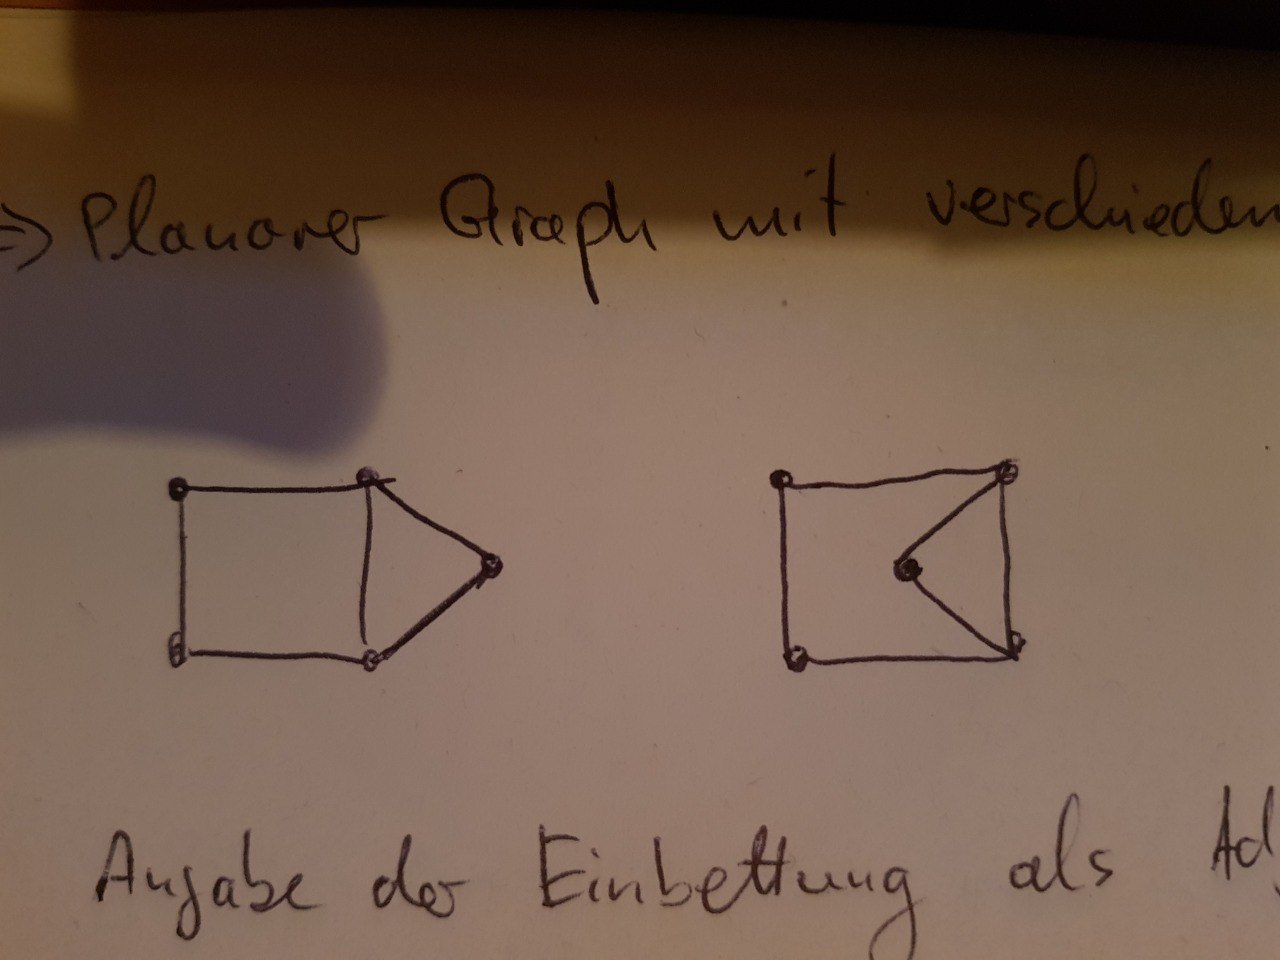 => Planarer Graph mit verschieden
Angabe der Einbettung als Adj